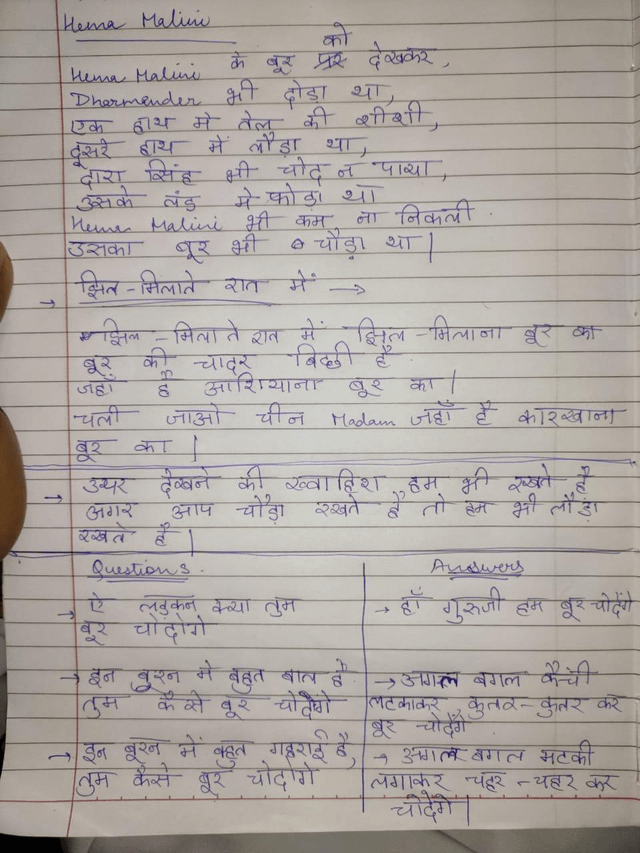 Hema Malini
को
Hema Malini के बूर देखकर,
Dharmender भी दोड़ा था,
एक हाथ मे तेल की शीशी,
दूसरे हाथ में लौड़ा था,
दारा सिंह भी चोद न पाया,
उसके लंड मे फोड़ा था
Hema Malini भी कम ना निकली
उसका बूर भी चौड़ा था |
→ झिल-मिलाते रात में →
झिल-मिलाते रात में झिल-मिलाना बूर का
बूर की चादर बिछी है
जहाँ है आशियाना बूर का |
चली जाओ चीन Madam जहाँ है कारखाना
बूर का |
→ उधर देखने की ख्वाहिश हम भी रखते है
अगर आप चौड़ा रखते है तो हम भी लौड़ा
रखते है |
Questions. Answers
→ ऐ लड़कन क्या तुम → हाँ गुरुजी हम बूर चोदेंगे
बूर चोदोगे
→ इन बुरन मे बहुत बाल है → अगल बगल कैंची
तुम कैसे बूर चोदोगे लटकाकर, कुतर-कुतर कर
बूर चोदेंगे
→ इन बूरन में बहुत गहराई है, → अगल बगल मटकी
तुम कैसे बूर चोदोगे लगाकर चहर-चहर कर
चोदेंगे |